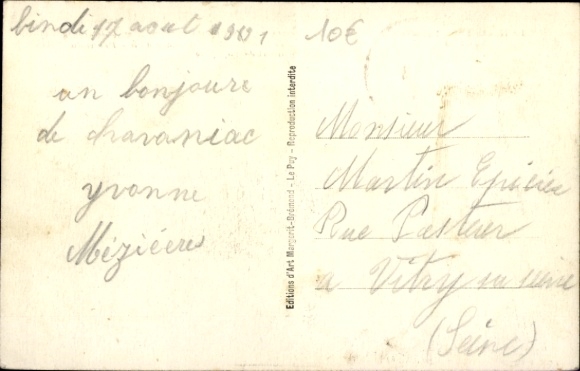 17 aout
10€
un bonjoure
de chavaniac
yvonne
Mézières
Editions d'Art Margerit-Brémond - Le Puy - Reproduction interdite
Monsieur
Martin Epicier
Rue Pasteur
a Vitry sur seine
(Seine)